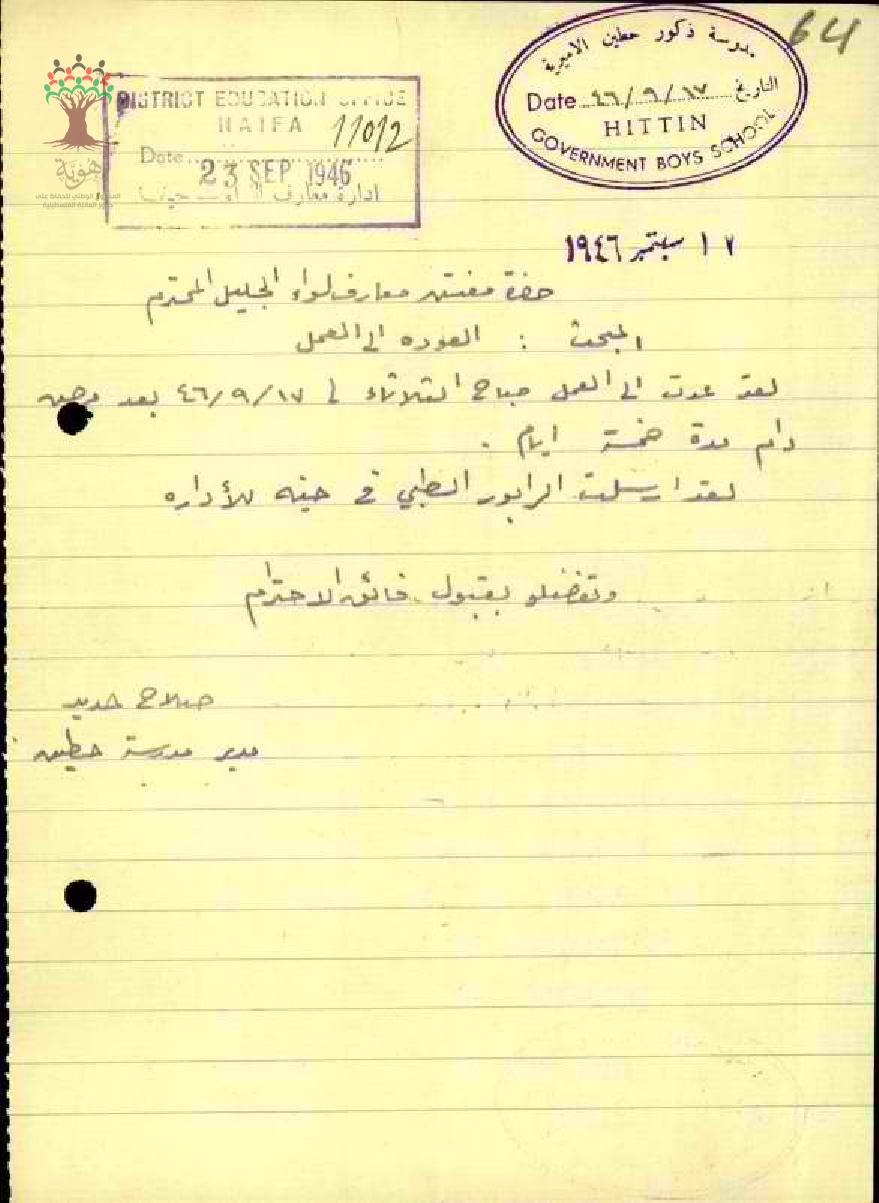 64
مدرسة ذكور حطين الاميرية
Date ٤٦/٩/١٧ التاريخ
HITTIN
GOVERNMENT BOYS SCHOOL
DISTRICT EDUCATION OFFICE
HAIFA 11012
Date
23 SEP 1946
ادارة معارف
هوية
١٧ سبتمبر ١٩٤٦
حضرة مفتش معارف لواء الجليل المحترم
المبحث : العوده الى العمل
لقد عدت الى العمل صباح الثلاثاء في ٤٦/٩/١٧ بعد مرض
دام مدة خمسة ايام .
لقد ارسلت الرابور الطبي في حينه للأداره
وتفضلو بقبول فائق الاحترام
صلاح حديد
مدير مدرسة حطين